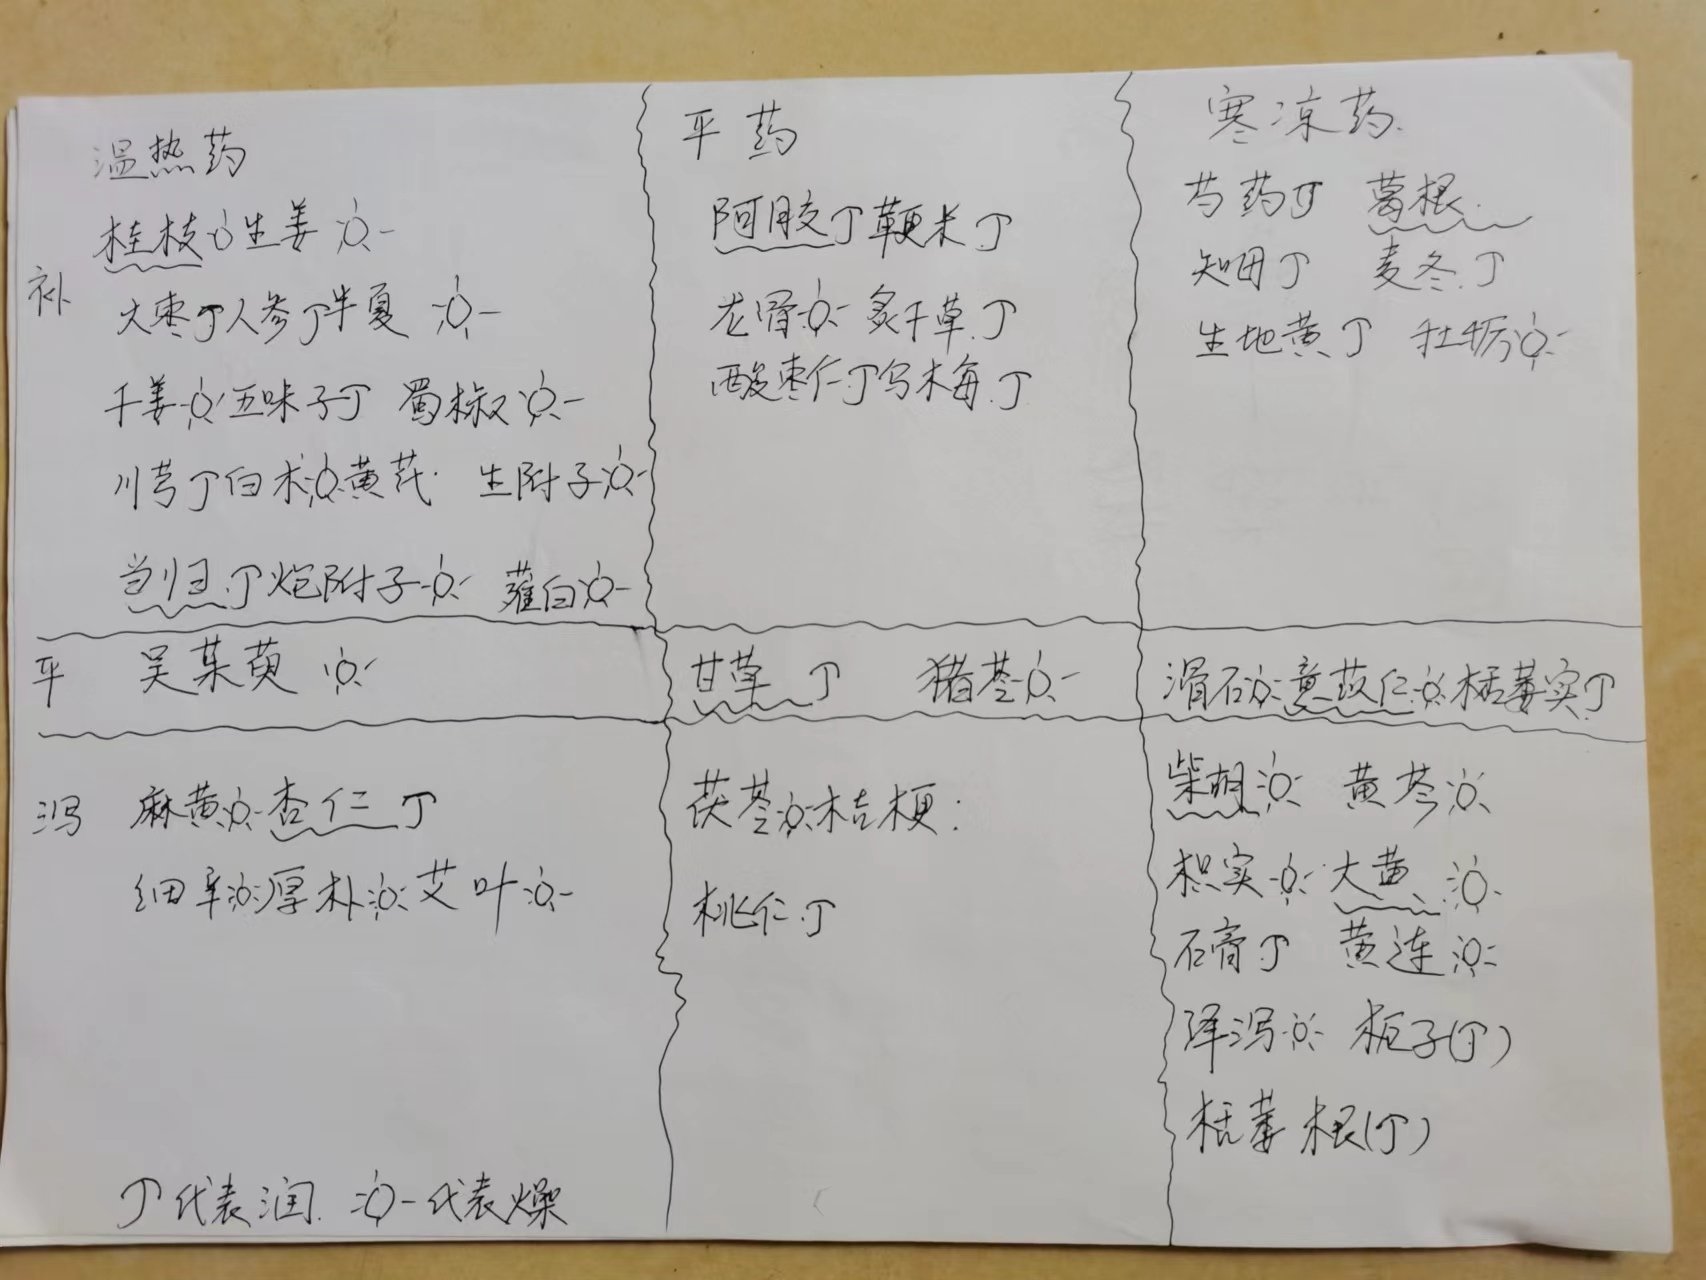 温热药
桂枝 生姜
大枣丁人参丁半夏
干姜 五味子丁 蜀椒
川芎丁白术 黄芪 生附子
当归丁炮附子 薤白
补
平药
阿胶丁粳米丁
龙骨 炙干草丁
酸枣仁丁乌梅丁
寒凉药
芍药丁 葛根
知母丁 麦冬丁
生地黄丁 牡蛎
平
吴茱萸
甘草丁 猪苓
滑石 薏苡仁 栝蒌实丁
泻
麻黄 杏仁丁
细辛 厚朴 艾叶
茯苓 桔梗
桃仁丁
柴胡 黄芩
枳实 大黄
石膏丁 黄连
泽泻 栀子(丁)
栝蒌根(丁)
丁代表润 代表燥